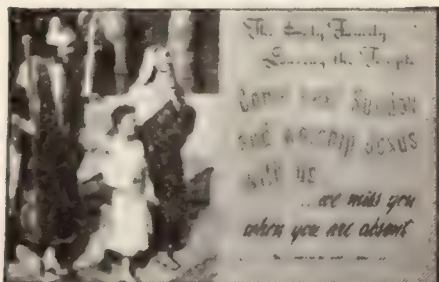 The Holy Family
Leaving the Temple
Come next Sunday
and worship Jesus
with us
...we miss you
when you are absent